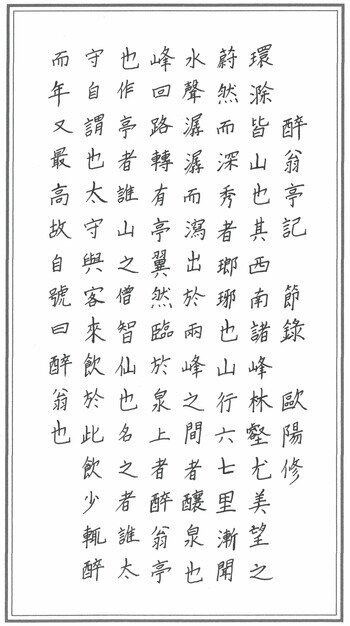 醉翁亭記 節錄 歐陽修
環滁皆山也其西南諸峰林壑尤美望之
蔚然而深秀者瑯琊也山行六七里漸聞
水聲潺潺而瀉出於兩峰之間者釀泉也
峰回路轉有亭翼然臨於泉上者醉翁亭
也作亭者誰山之僧智仙也名之者誰太
守自謂也太守與客來飲於此飲少輒醉
而年又最高故自號曰醉翁也